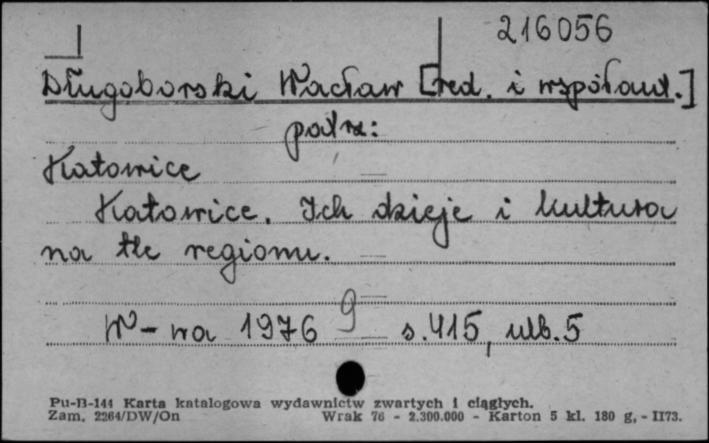 216056
Długoborski Wacław [red. i współaut.]
patrz:
Katowice
Katowice. Ich dzieje i kultura
na tle regionu.
W-wa 1976 g s. 415, ulb. 5
Pu-B-144 Karta katalogowa wydawnictw zwartych i ciągłych.
Zam. 2264/DW/On Wrak 76 - 2.300.000 - Karton 5 kl. 180 g, - II73.